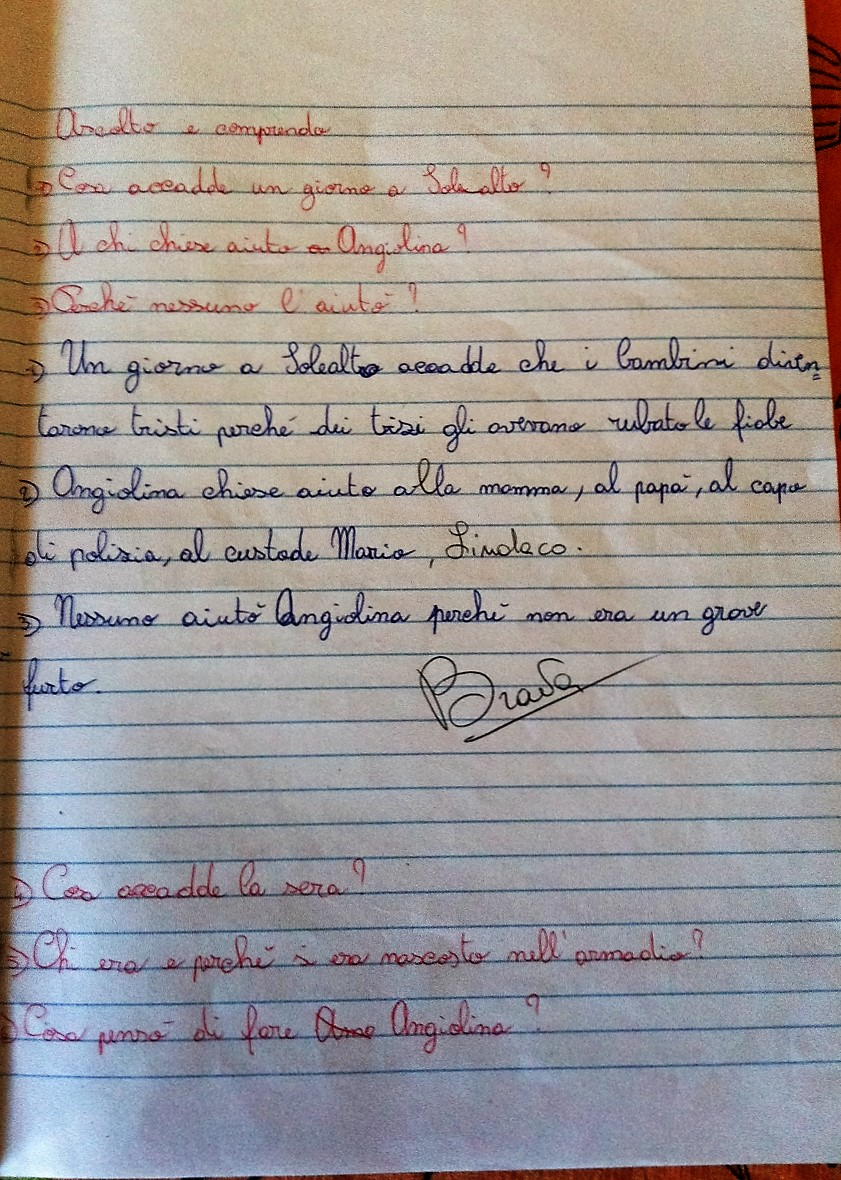 Ascolto e comprendo
1) Cosa accadde un giorno a Solealto?
2) A chi chiese aiuto a Angiolina?
3) Perché nessuno l'aiutò?
1) Un giorno a Solealto accadde che i bambini diven
tarono tristi perché dei tizi gli avevano rubato le fiabe
2) Angiolina chiese aiuto alla mamma, al papà, al capo
di polizia, al custode Mario, Sindaco.
3) Nessuno aiutò Angiolina perché non era un grave
furto.
Brava
4) Cosa accadde la sera?
5) Chi era e perché si era nascosto nell'armadio?
) Cosa pensò di fare Angiolina?